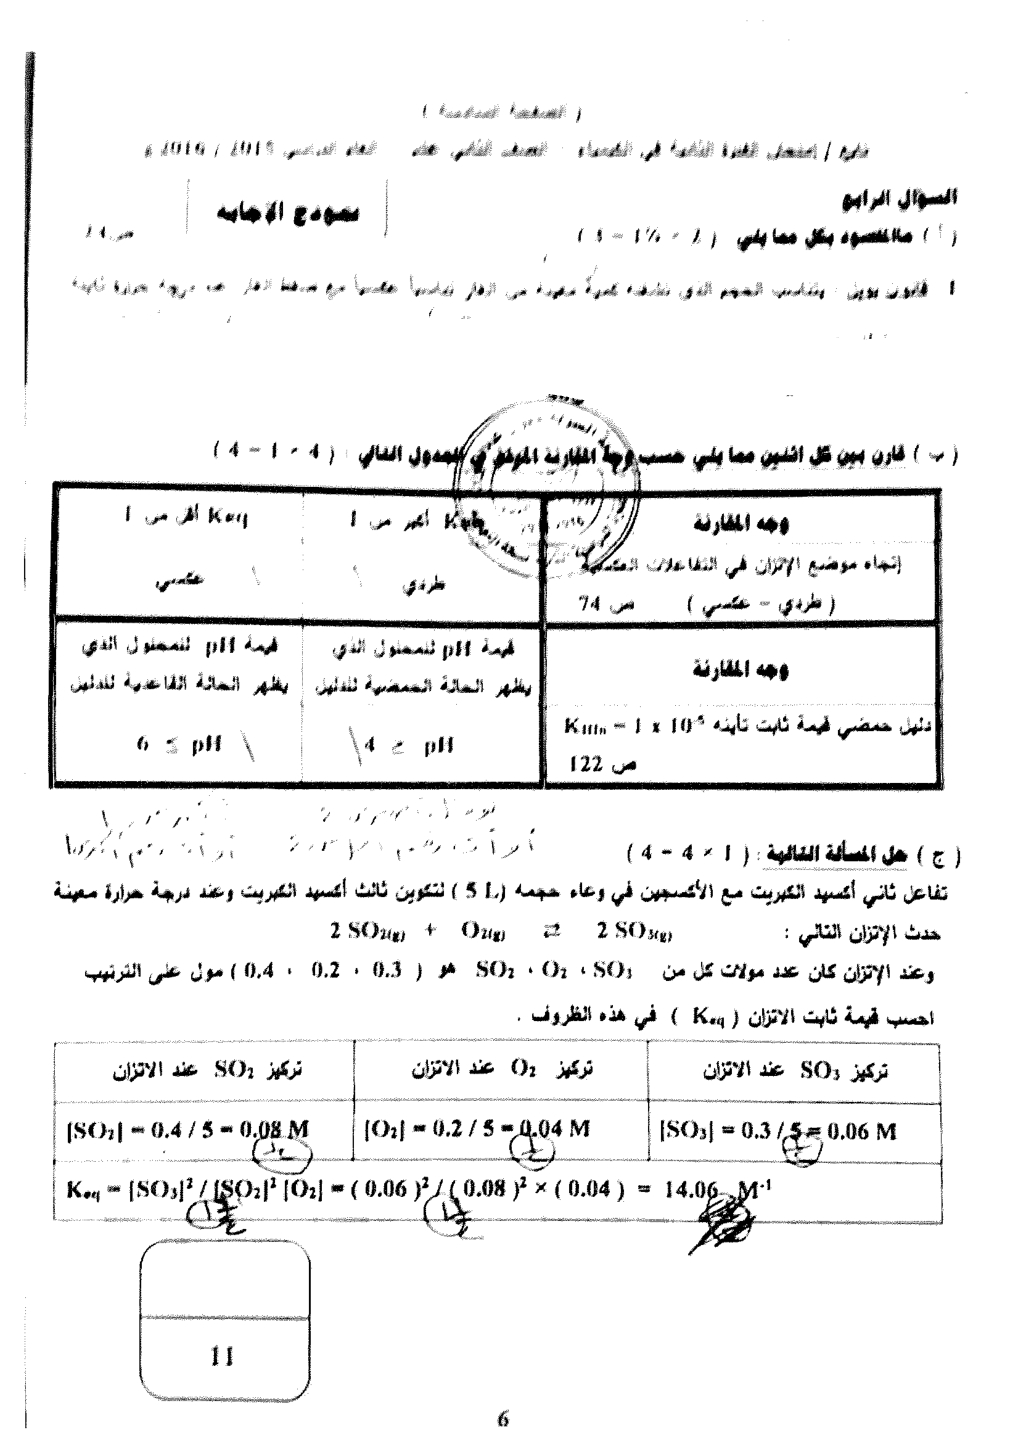 ( الصفحة السادسة )
تابع / إمتحان الفترة الثانية في الكيمياء - الصف الثاني عشر العام الدراسي 2015 / 2016 م
نموذج الإجابة
السؤال الرابع
( أ ) ما المقصود بكل مما يلي ( 2 × 1½ = 3 )
1 - قانون بويل : يتناسب الحجم الذي تشغله كمية معينة من الغاز تناسباً عكسياً مع ضغط الغاز عند درجة حرارة ثابتة
( ب ) قارن بين كل اثنين مما يلي حسب وجه المقارنة الموضح في الجدول التالي : ( 4 × 1 = 4 )
وجه المقارنة Keq أكبر من 1 Keq أقل من 1
إتجاه موضع الإتزان في التفاعلات العكسية
( طردي – عكسي ) ص 74 طردي عكسي
وجه المقارنة قيمة pH للمحلول الذي يظهر الحالة الحمضية للدليل قيمة pH للمحلول الذي يظهر الحالة القاعدية للدليل
دليل حمضي قيمة ثابت تأينه KHIn = 1 x 10-5
ص 122 4 ≥ pH 6 ≤ pH
( ج ) حل المسألة التالية : ( 1 × 4 = 4 )
تفاعل ثاني أكسيد الكبريت مع الأكسجين في وعاء حجمه (5 L) لتكوين ثالث أكسيد الكبريت وعند درجة حرارة معينة
حدث الإتزان التالي : 2 SO2(g) + O2(g) ⇄ 2 SO3(g)
وعند الإتزان كان عدد مولات كل من SO2 ، O2 ، SO3 هو ( 0.4 ، 0.2 ، 0.3 ) مول على الترتيب
احسب قيمة ثابت الاتزان ( Keq ) في هذه الظروف .
تركيز SO3 عند الاتزان تركيز O2 عند الاتزان تركيز SO2 عند الاتزان
[SO2] = 0.4 / 5 = 0.08 M [O2] = 0.2 / 5 = 0.04 M [SO3] = 0.3 / 5 = 0.06 M
Keq = [SO3]2 / [SO2]2 [O2] = ( 0.06 )2 / ( 0.08 )2 × ( 0.04 ) = 14.06 M-1
11
6